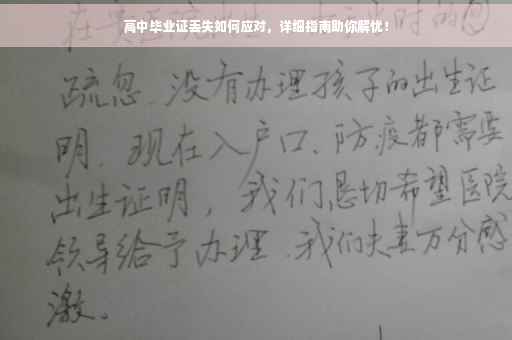 高中毕业证丢失如何应对，详细指南助你解忧！
在实 时的
疏忽、没有办理孩子的出生证
明、现在入户口、防疫都需要
出生证明，我们恳切希望医院
领导给予办理、我们夫妻万分感
激。